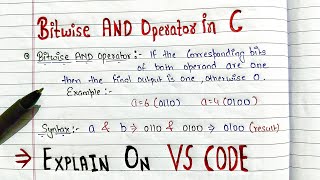 Bitwise AND Operator in C
Bitwise AND Operator:- If the corresponding bits
of both operand are one
then the final output is one, otherwise 0.
Example:-
a=6 (0110) a=4 (0100)
Syntax:- a & b ⇒ 0110 & 0100 ⇒ 0100 (result)
⇒ EXPLAIN ON VS CODE